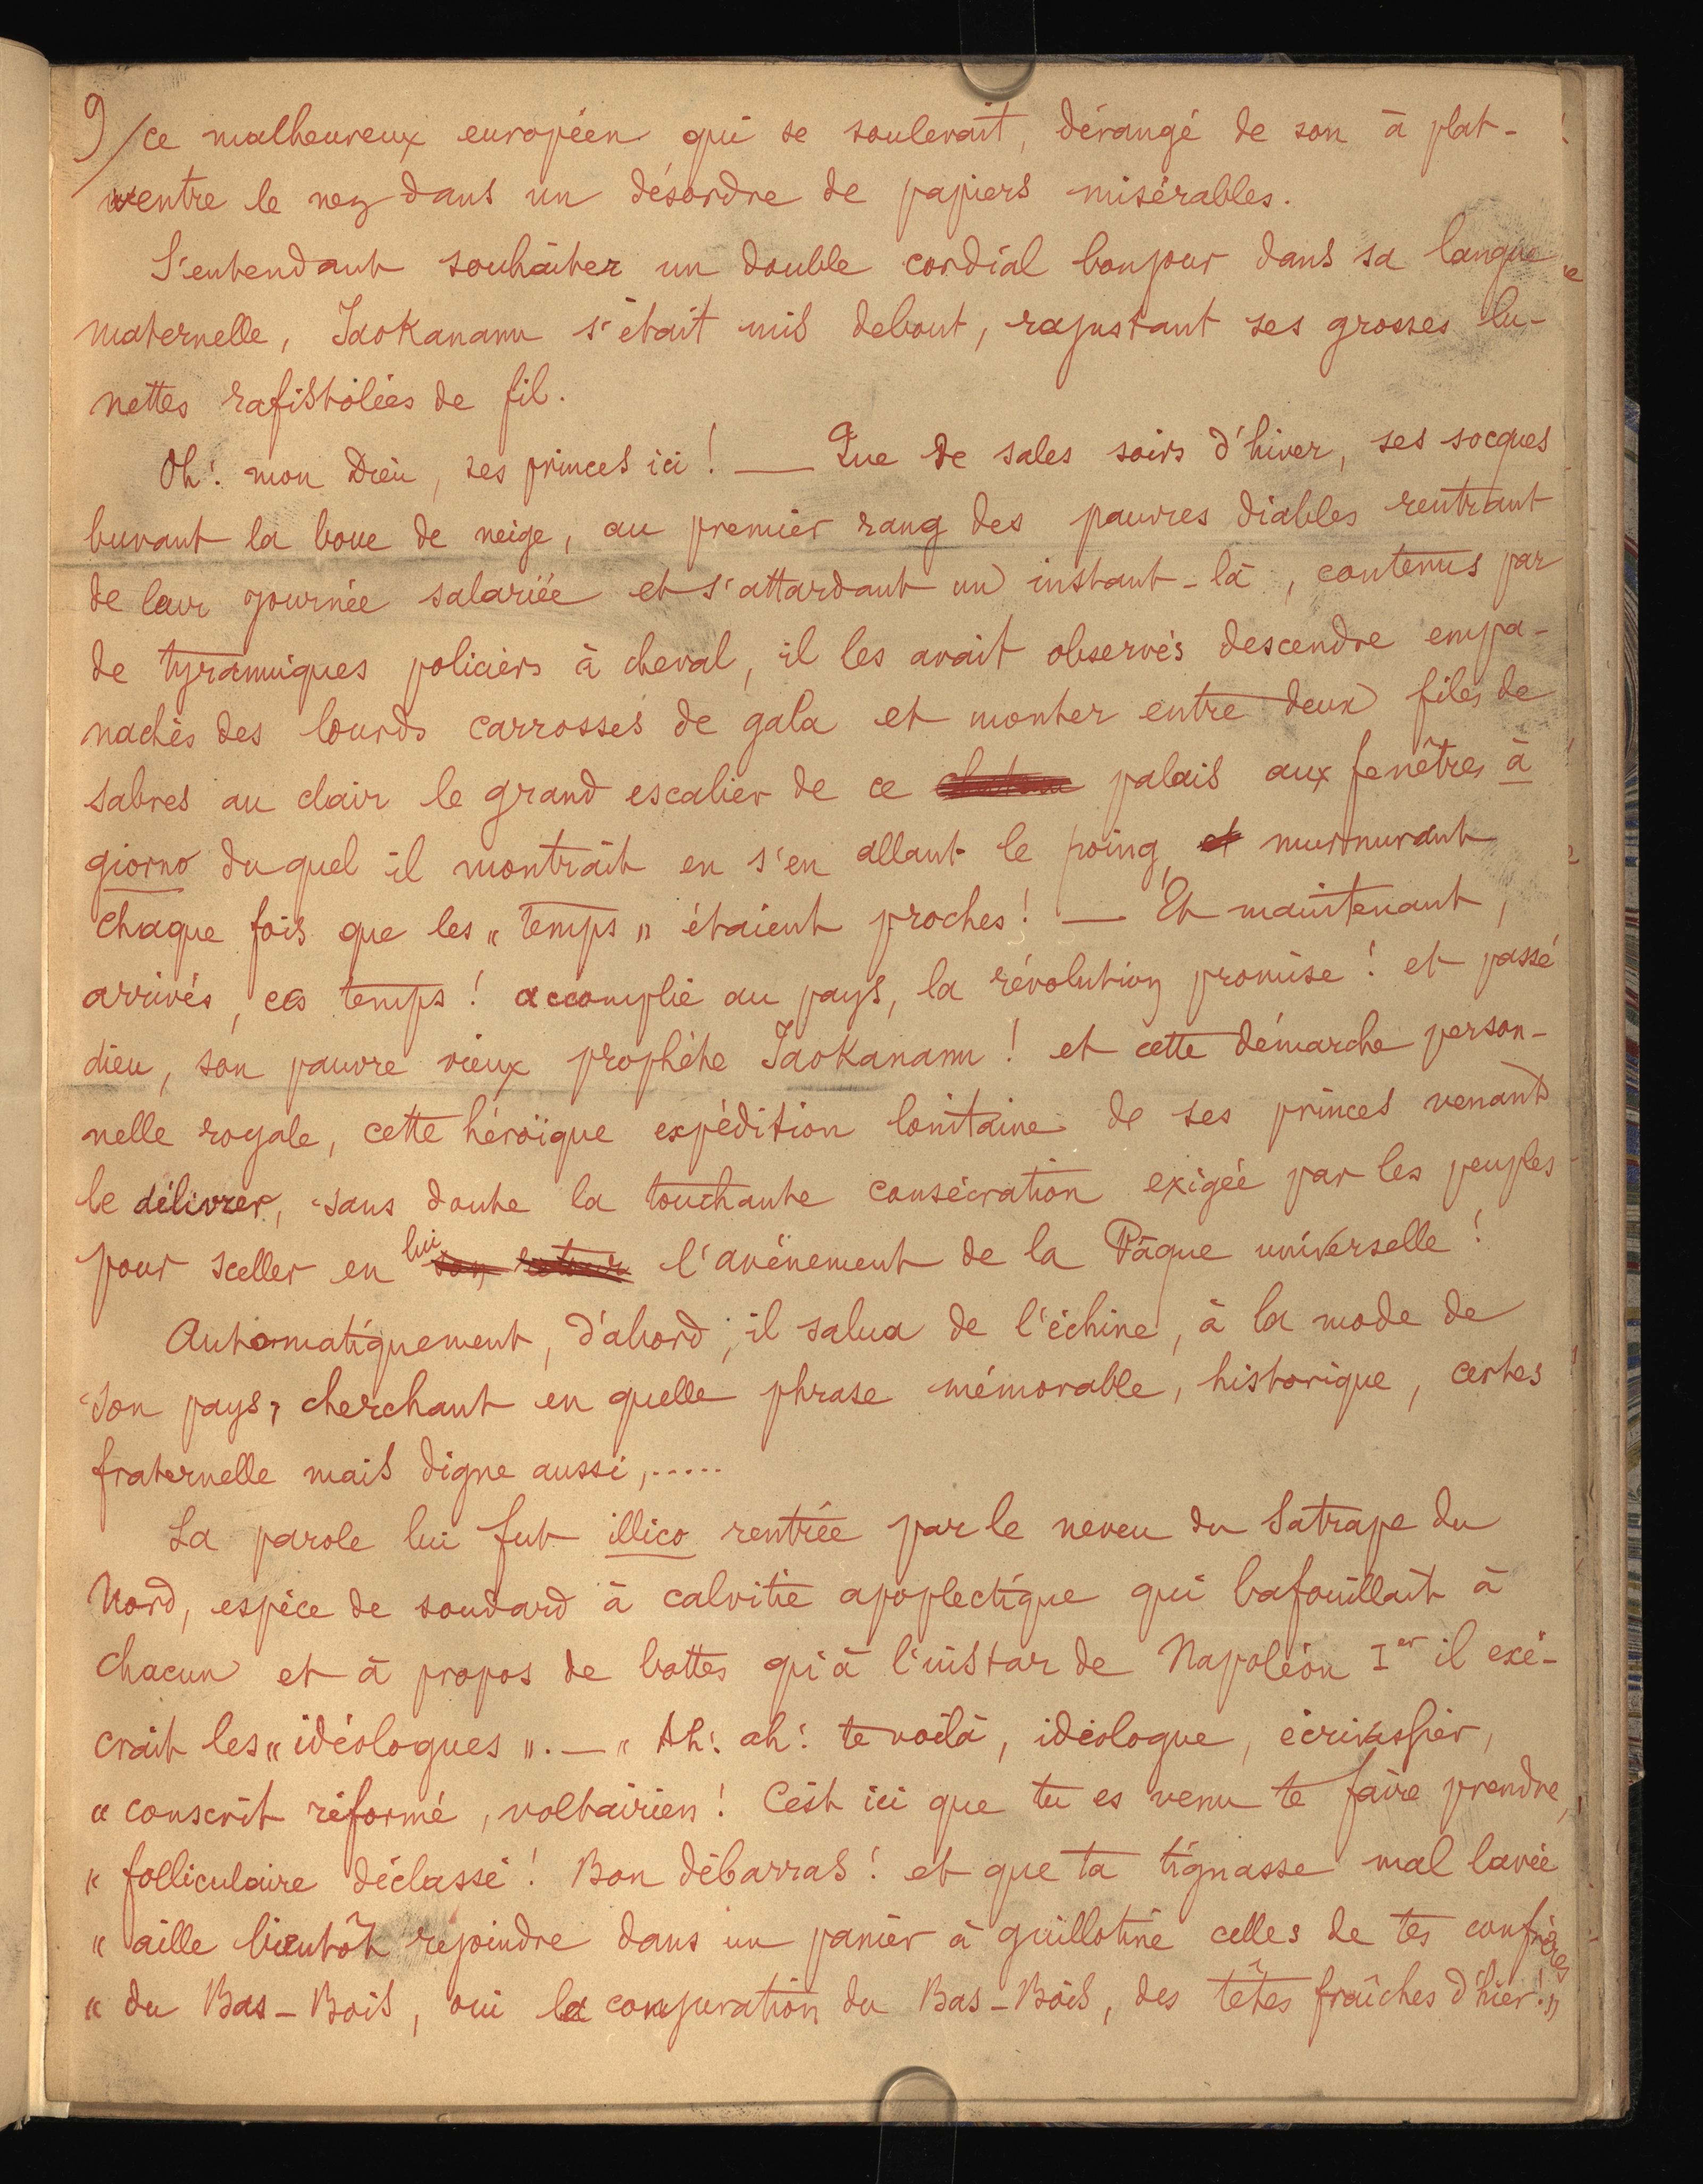 9/ ce malheureux européen qui se soulevait, dérangé de son à plat-
ventre le nez dans un désordre de papiers misérables.
S'entendant souhaiter un double cordial bonjour dans sa langue
maternelle, Iaokanann s'était mis debout, rajustant ses grosses lu-
nettes rafistolées de fil.
Oh! mon Dieu, ses princes ici! — Que de sales soirs d'hiver, ses socques
buvant la boue de neige, au premier rang des pauvres diables rentrant
de leur journée salariée et s'attardant un instant-là, contenus par
de tyranniques policiers à cheval, il les avait observés descendre empa-
nachés des lourds carrosses de gala et monter entre deux files de
sabres au clair le grand escalier de ce palais aux fenêtres à
giorno duquel il montrait en s'en allant le poing, murmurant
chaque fois que les « temps » étaient proches! — Et maintenant,
arrivés, ces temps! accomplie au pays, la révolution promise! et passé
dieu, son pauvre vieux prophète Iaokanann! et cette démarche person-
nelle royale, cette héroïque expédition lointaine de ses princes venant
le délivrer, sans doute la touchante consécration exigée par les peuples
pour sceller en lui l'avènement de la Pâque universelle!
Automatiquement, d'abord, il salua de l'échine, à la mode de
son pays, cherchant en quelle phrase mémorable, historique, certes
fraternelle mais digne aussi,.....
La parole lui fut illico rentrée par le neveu du Satrape du
Nord, espèce de soudard à calvitie apoplectique qui bafouillait à
chacun et à propos de bottes qu'à l'instar de Napoléon Ier il exé-
crait les « idéologues ». — « Ah! ah! te voilà, idéologue, écrivassier,
« conscrit réformé, voltairien! C'est ici que tu es venu te faire prendre,
« folliculaire déclassé! Bon débarras! et que ta tignasse mal lavée
« aille bientôt rejoindre dans un panier à guillotine celles de tes confrères
« du Bas-Bois, oui la conjuration du Bas-Bois, des têtes fraîches d'hier! »